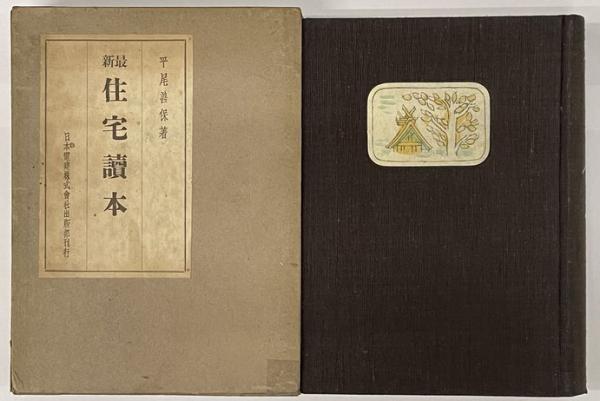 平尾善保著
最新
住宅讀本
日本電建株式會社出版部刊行